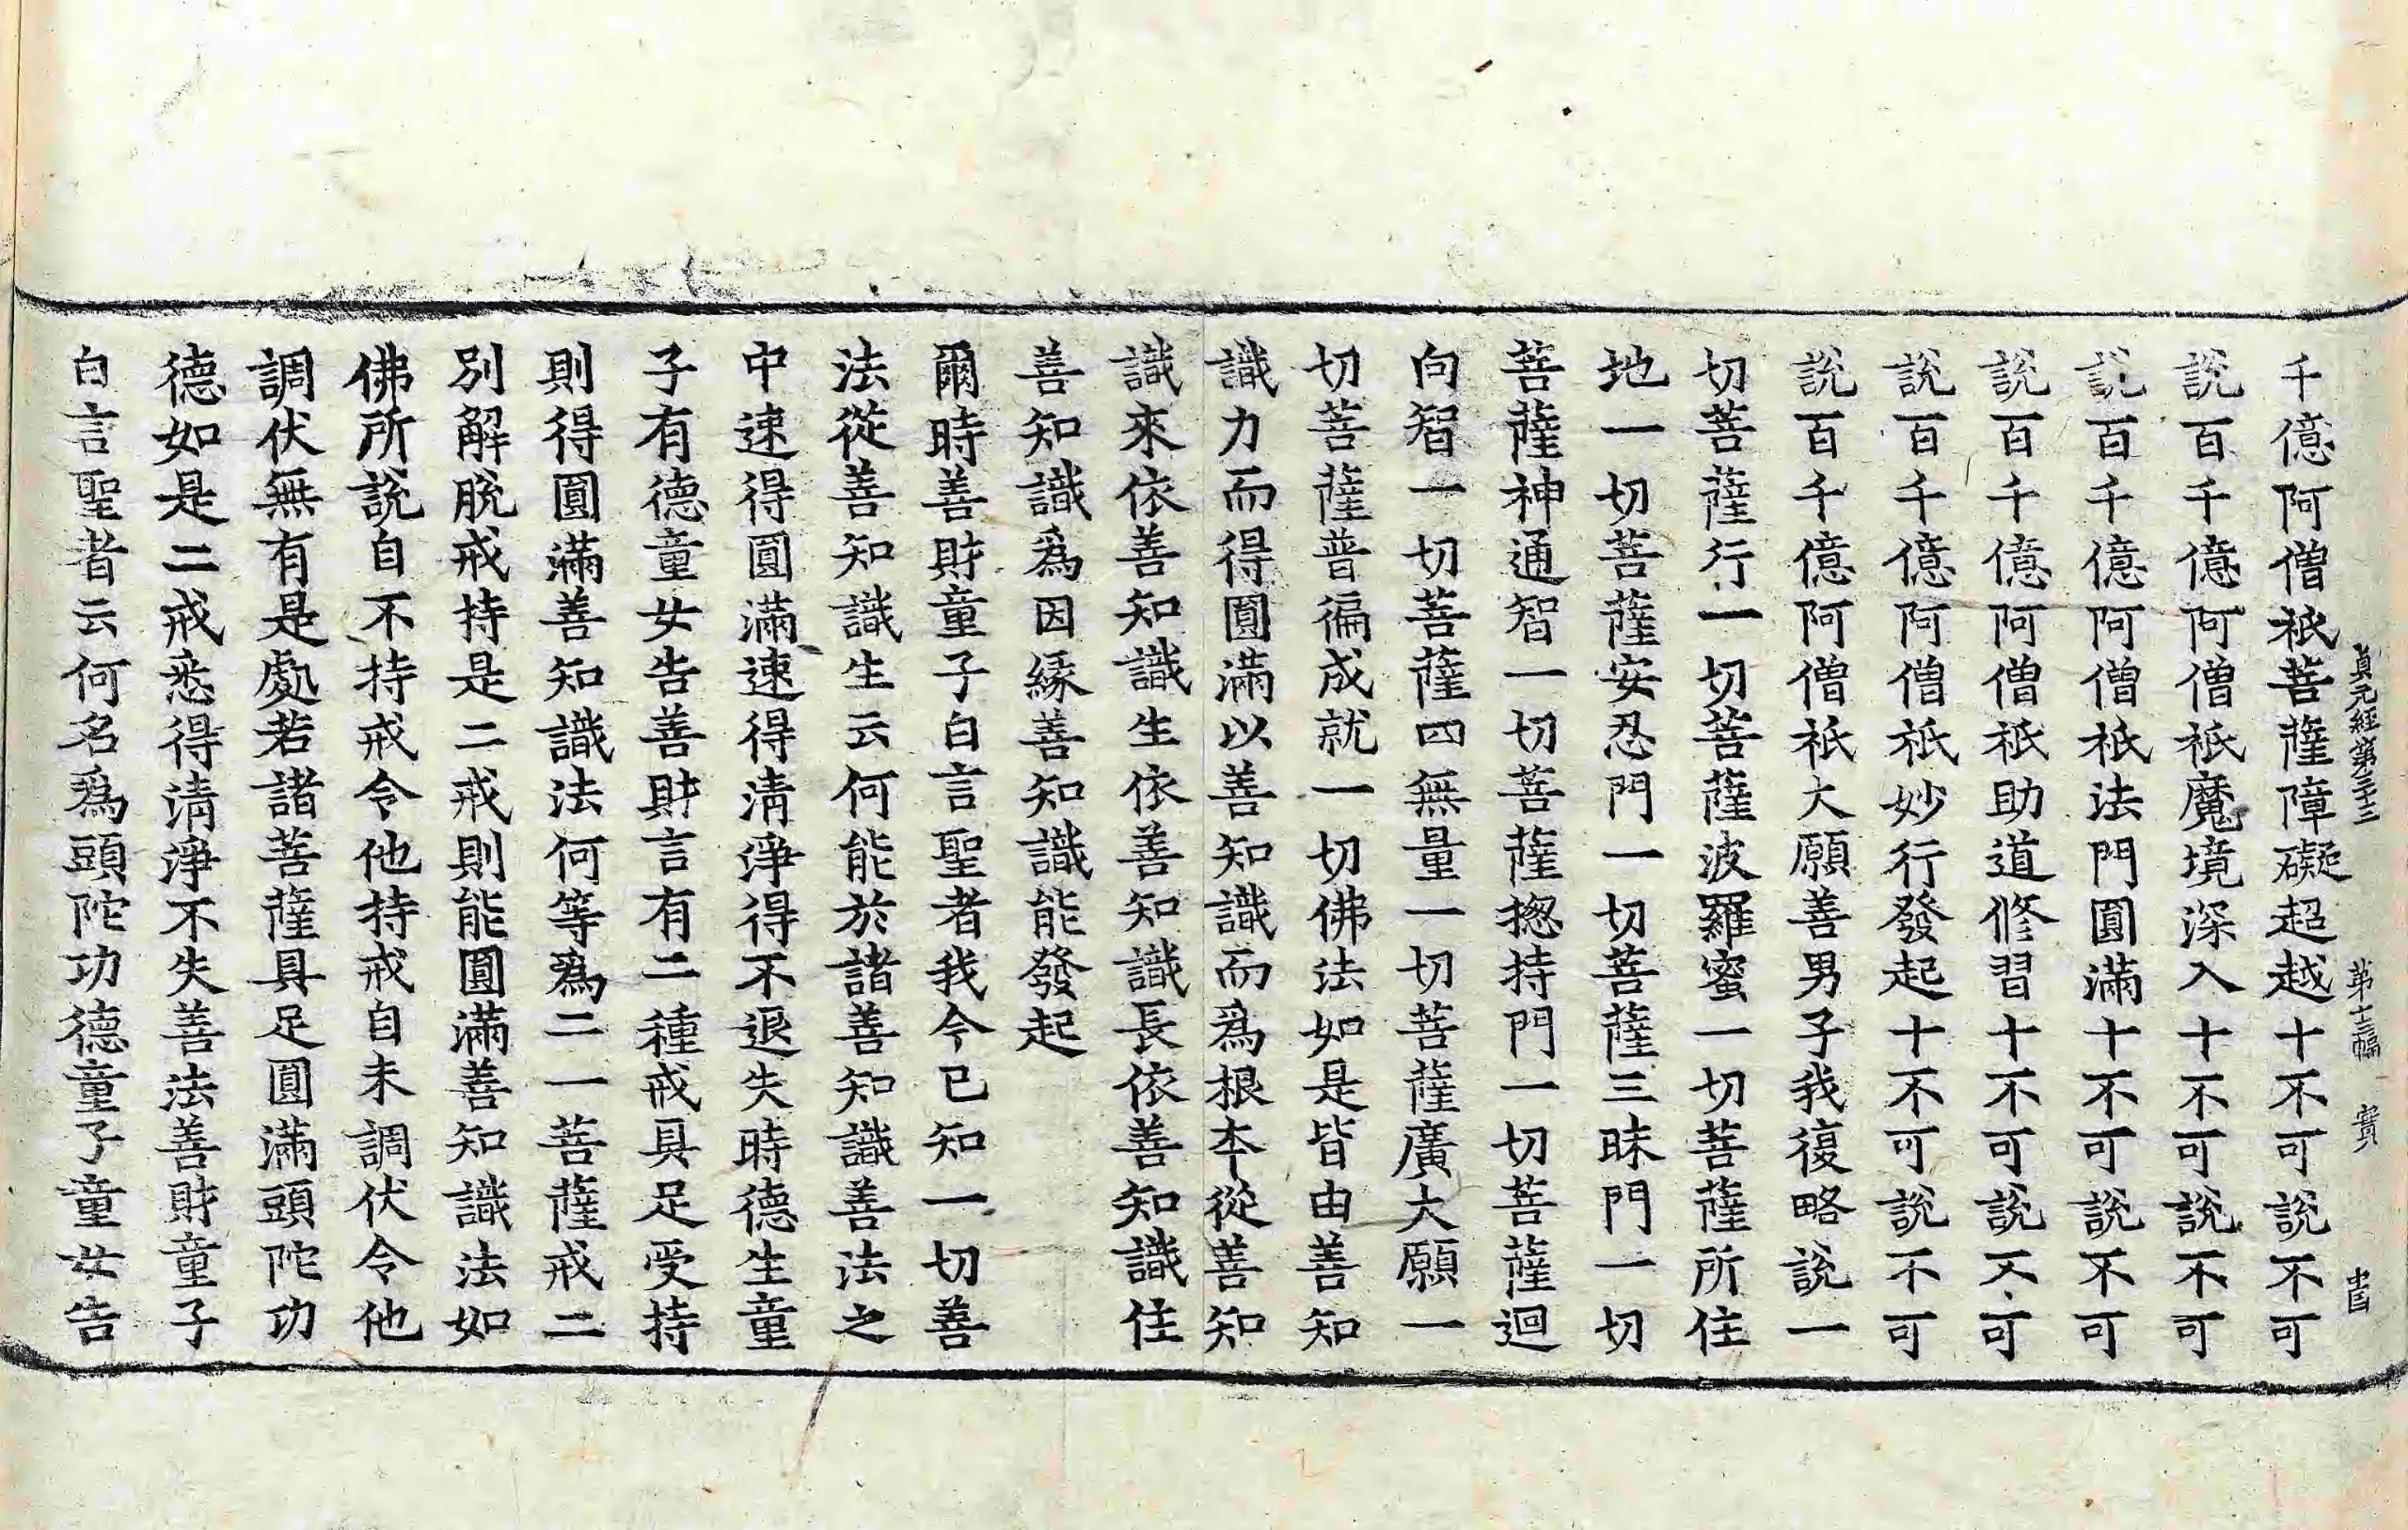 貞元經第三十三 第十三幅 實
千億阿僧祇菩薩障礙超越十不可說不可
說百千億阿僧祇魔境深入十不可說不可
說百千億阿僧祇法門圓滿十不可說不可
說百千億阿僧祇助道修習十不可說不可
說百千億阿僧祇妙行發起十不可說不可
說百千億阿僧祇大願善男子我復略說一
切菩薩行一切菩薩波羅蜜一切菩薩所住
地一切菩薩安忍門一切菩薩三昧門一切
菩薩神通智一切菩薩揔持門一切菩薩迴
向智一切菩薩四無量一切菩薩廣大願一
切菩薩普徧成就一切佛法如是皆由善知
識力而得圓滿以善知識而爲根本從善知
識來依善知識生依善知識長依善知識住
善知識爲因緣善知識能發起
爾時善財童子白言聖者我今已知一切善
法從善知識生云何能於諸善知識善法之
中速得圓滿速得清淨得不退失時德生童
子有德童女告善財言有二種戒具足受持
則得圓滿善知識法何等爲二一菩薩戒二
別解脫戒持是二戒則能圓滿善知識法如
佛所說自不持戒令他持戒自未調伏令他
調伏無有是處若諸菩薩具足圓滿頭陀功
德如是二戒悉得清淨不失善法善財童子
白言聖者云何名爲頭陀功德童子童女告